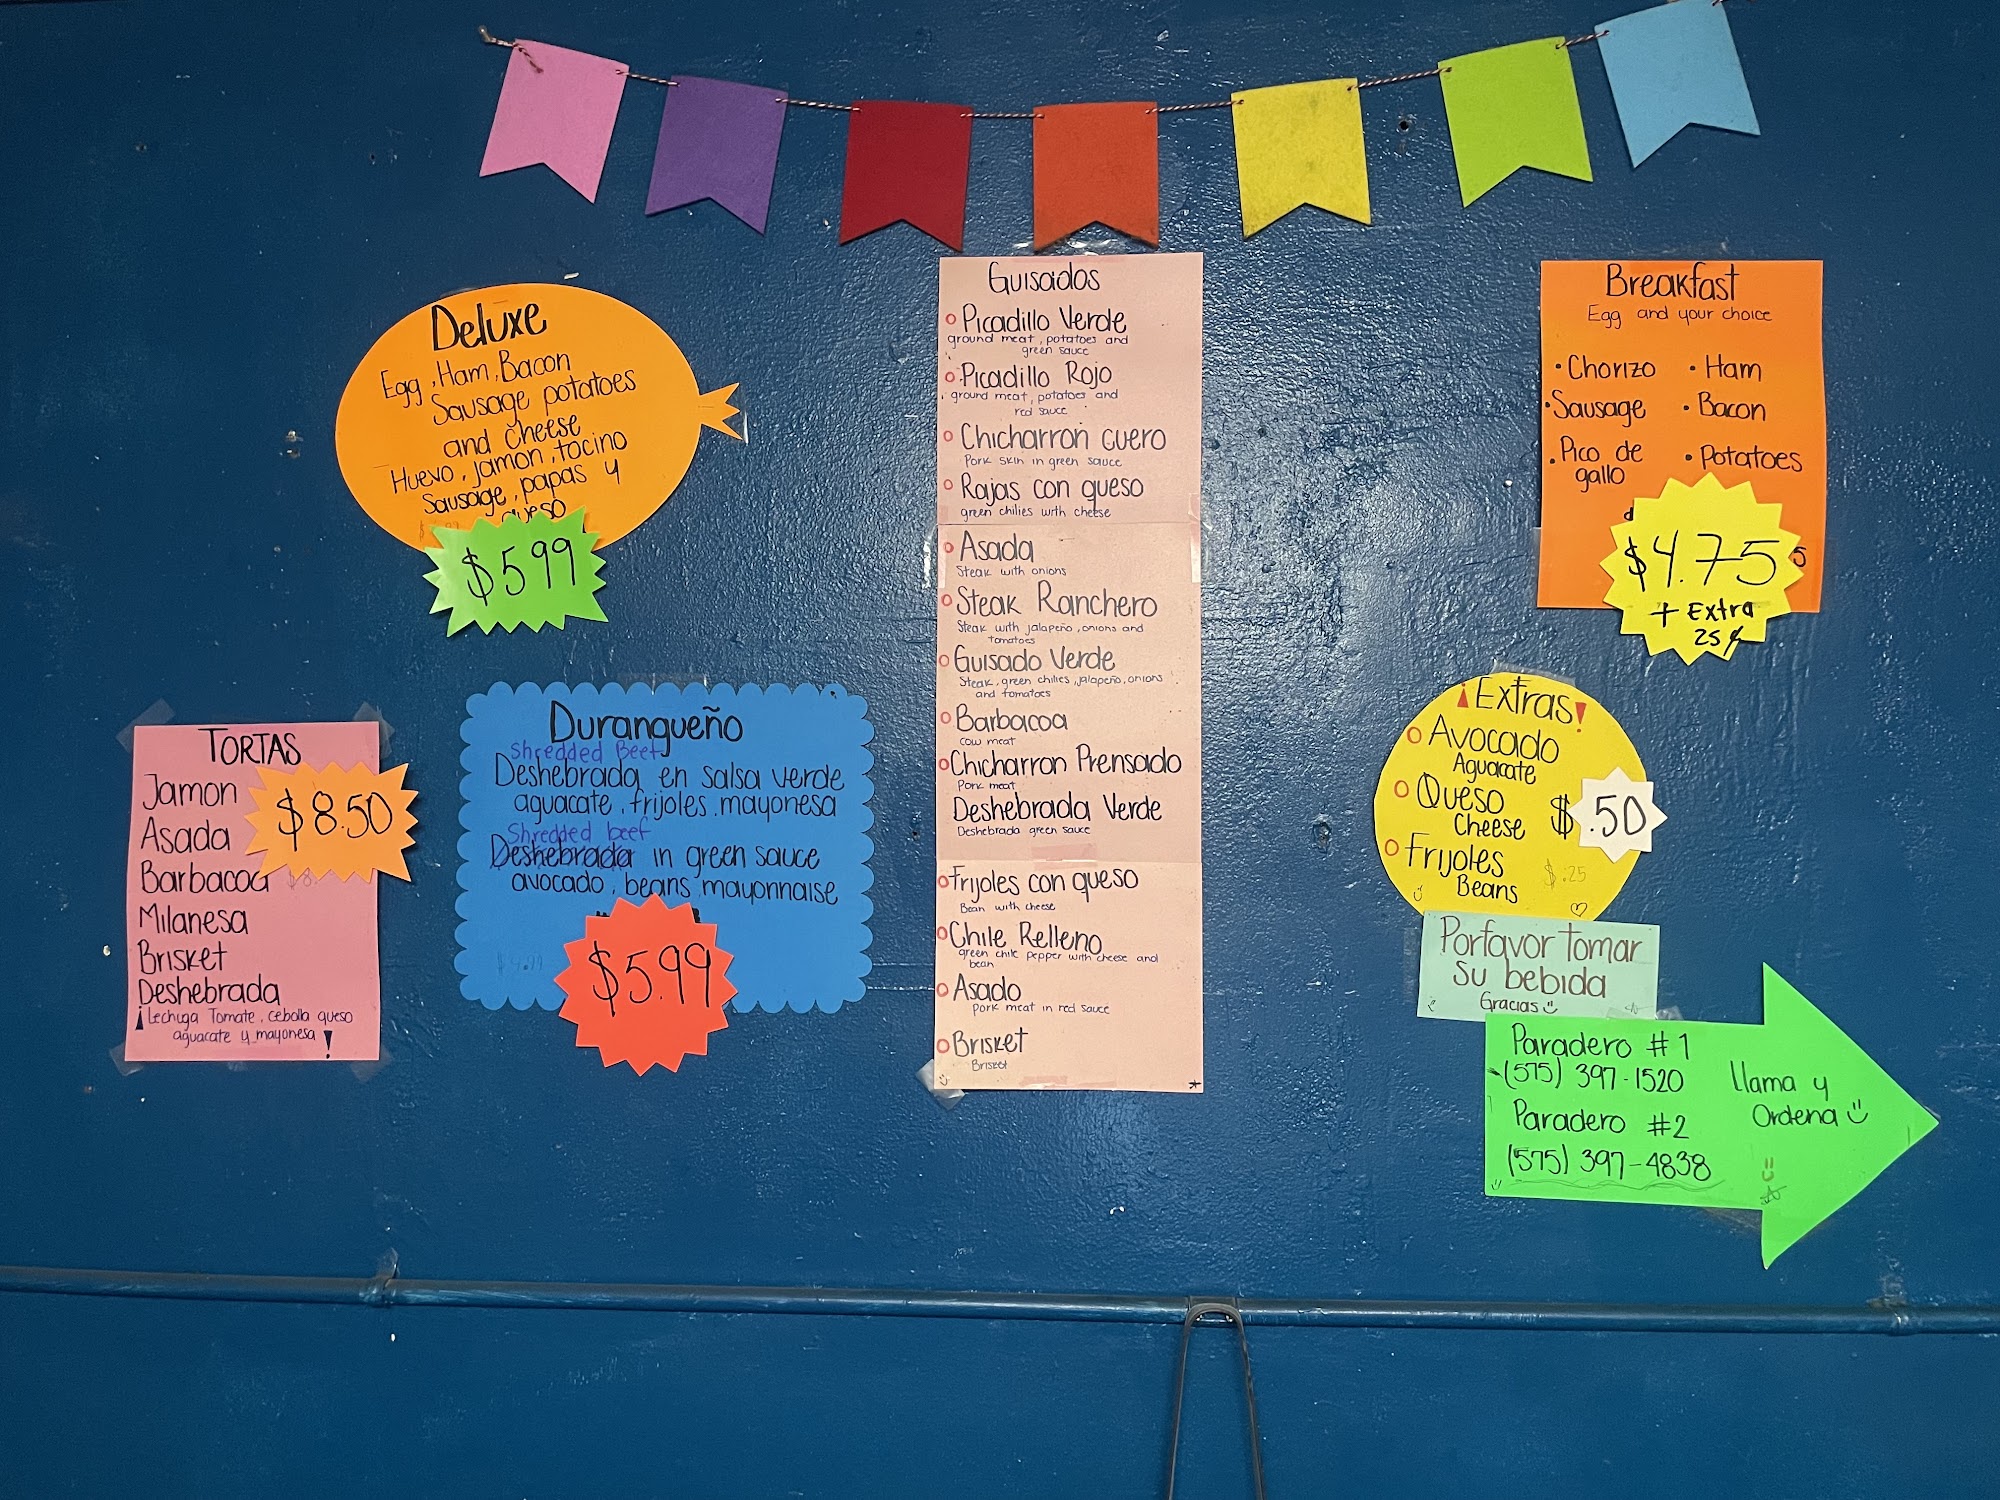 Deluxe
Egg, Ham, Bacon
Sausage potatoes
and cheese
Huevo, jamon, tocino
Sausage, papas y
queso
$5.99
TORTAS
Jamon
Asada
Barbacoa
Milanesa
Brisket
Deshebrada
¡Lechuga Tomate, cebolla queso
aguacate y mayonesa!
$8.50
Durangueño
Shredded Beef
Deshebrada en salsa verde
aguacate, frijoles, mayonesa
Shredded beef
Deshebrada in green sauce
avocado, beans, mayonnaise
$4.99
$5.99
Guisados
Picadillo Verde
ground meat, potatoes and
green sauce
Picadillo Rojo
ground meat, potatoes and
red sauce
Chicharron cuero
Pork skin in green sauce
Rajas con queso
green chilies with cheese
Asada
Steak with onions
Steak Ranchero
Steak with jalapeño, onions and
tomatoes
Guisado Verde
Steak, green chilies, jalapeño, onions
and tomatoes
Barbacoa
cow meat
Chicharron Prensado
Pork meat
Deshebrada Verde
Deshebrada green sauce
Frijoles con queso
Bean with cheese
Chile Relleno
green chile pepper with cheese and
bean
Asado
pork meat in red sauce
Brisket
Brisket
Breakfast
Egg and your choice
• Chorizo • Ham
• Sausage • Bacon
• Pico de • Potatoes
gallo
$4.75
+ Extra
25¢
¡Extras!
Avocado
Aguacate
Queso
Cheese
$.50
Frijoles
Beans
$.25
Porfavor tomar
su bebida
Gracias
Paradero #1
(575) 397-1520
Paradero #2
(575) 397-4838
Llama y
Ordena